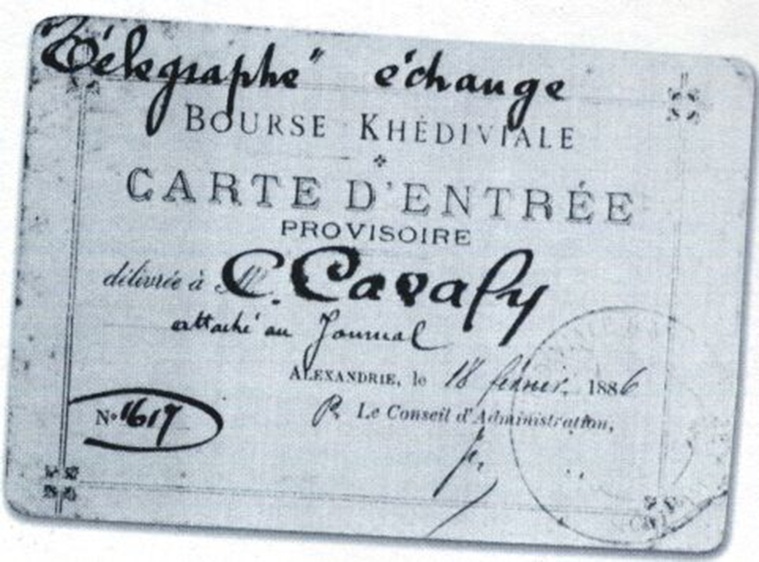 "Télégraphe" échange
BOURSE KHÉDIVIALE
CARTE D'ENTRÉE
PROVISOIRE
délivrée à Mr C. Cavafy
attaché au Journal
ALEXANDRIE, le 18 février 1886
Nº 1617
P. Le Conseil d'Administration,